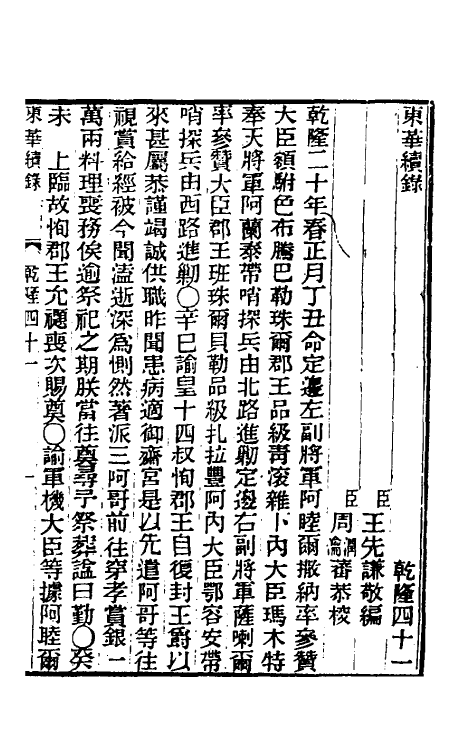 東華續錄
乾隆四十一
臣王先謙敬編
臣周潤蕃恭校
瀹
乾隆二十年春正月丁丑命定邊左副將軍阿睦爾撒納率參贊
大臣額駙色布騰巴勒珠爾郡王品級青滾雜卜內大臣瑪木特
奉天將軍阿蘭泰帶哨探兵由北路進勦定邊右副將軍薩喇爾
率參贊大臣郡王班珠爾貝勒品級扎拉豐阿內大臣鄂容安帶
哨探兵由西路進勦〇辛巳諭皇十四叔恂郡王自復封王爵以
來甚屬恭謹竭誠供職昨聞患病適御齋宮是以先遣阿哥等往
視賞給經被今聞溘逝深爲惻然著派三阿哥前往穿孝賞銀一
萬兩料理喪務俟逾祭祀之期朕當往奠尋予祭葬諡曰勤〇癸
未　上臨故恂郡王允禵喪次賜奠〇諭軍機大臣等據阿睦爾
東華續錄
乾隆四十一
一